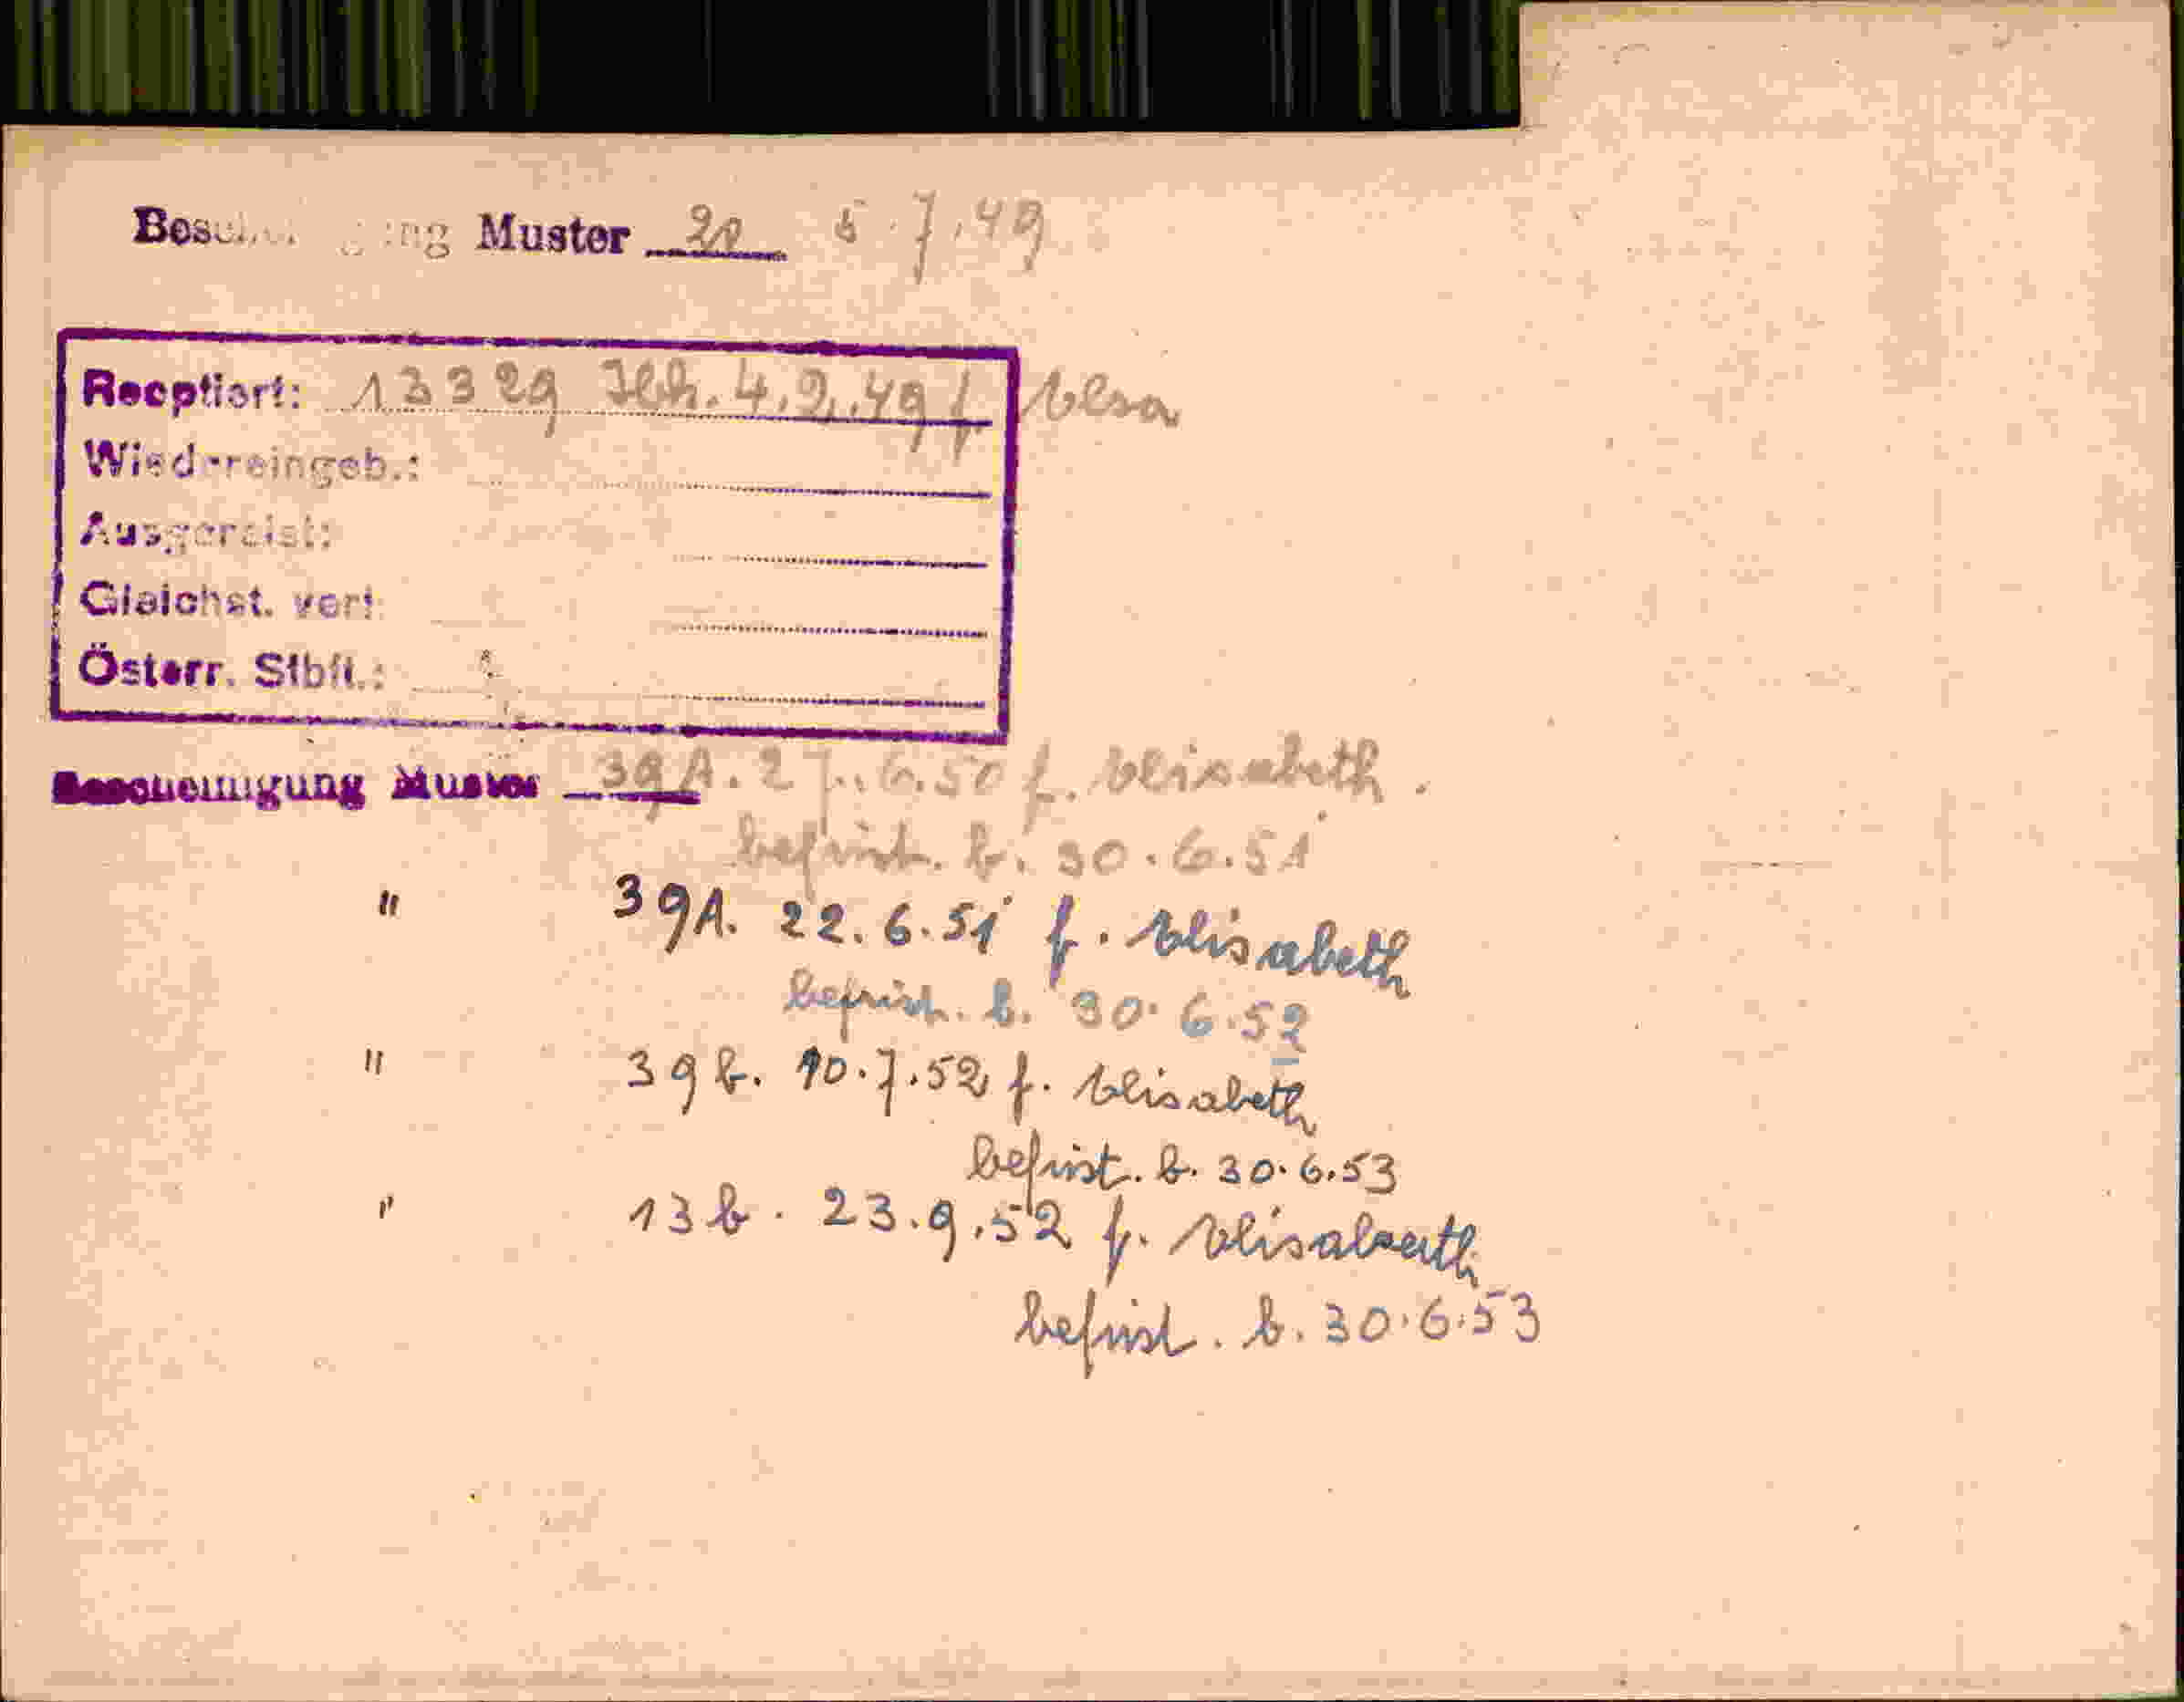 Bescheinigung Muster 20 5.7.49
Recptiert: 13329 Jeh. 4.2.49 f. Elsa
Wiedereingeb.:
Ausgereist:
Gleichst. verl.
Österr. Stbft.:
Bescheinigung Muster 39A. 27.6.50 f. Elisabeth.
befrist. b. 30.6.51
" 39A. 22.6.51 f. Elisabeth
befrist. b. 30.6.52
" 39b. 10.7.52 f. Elisabeth
befrist. b. 30.6.53
" 13b. 23.9.52 f. Elisabeth
befrist. b. 30.6.53